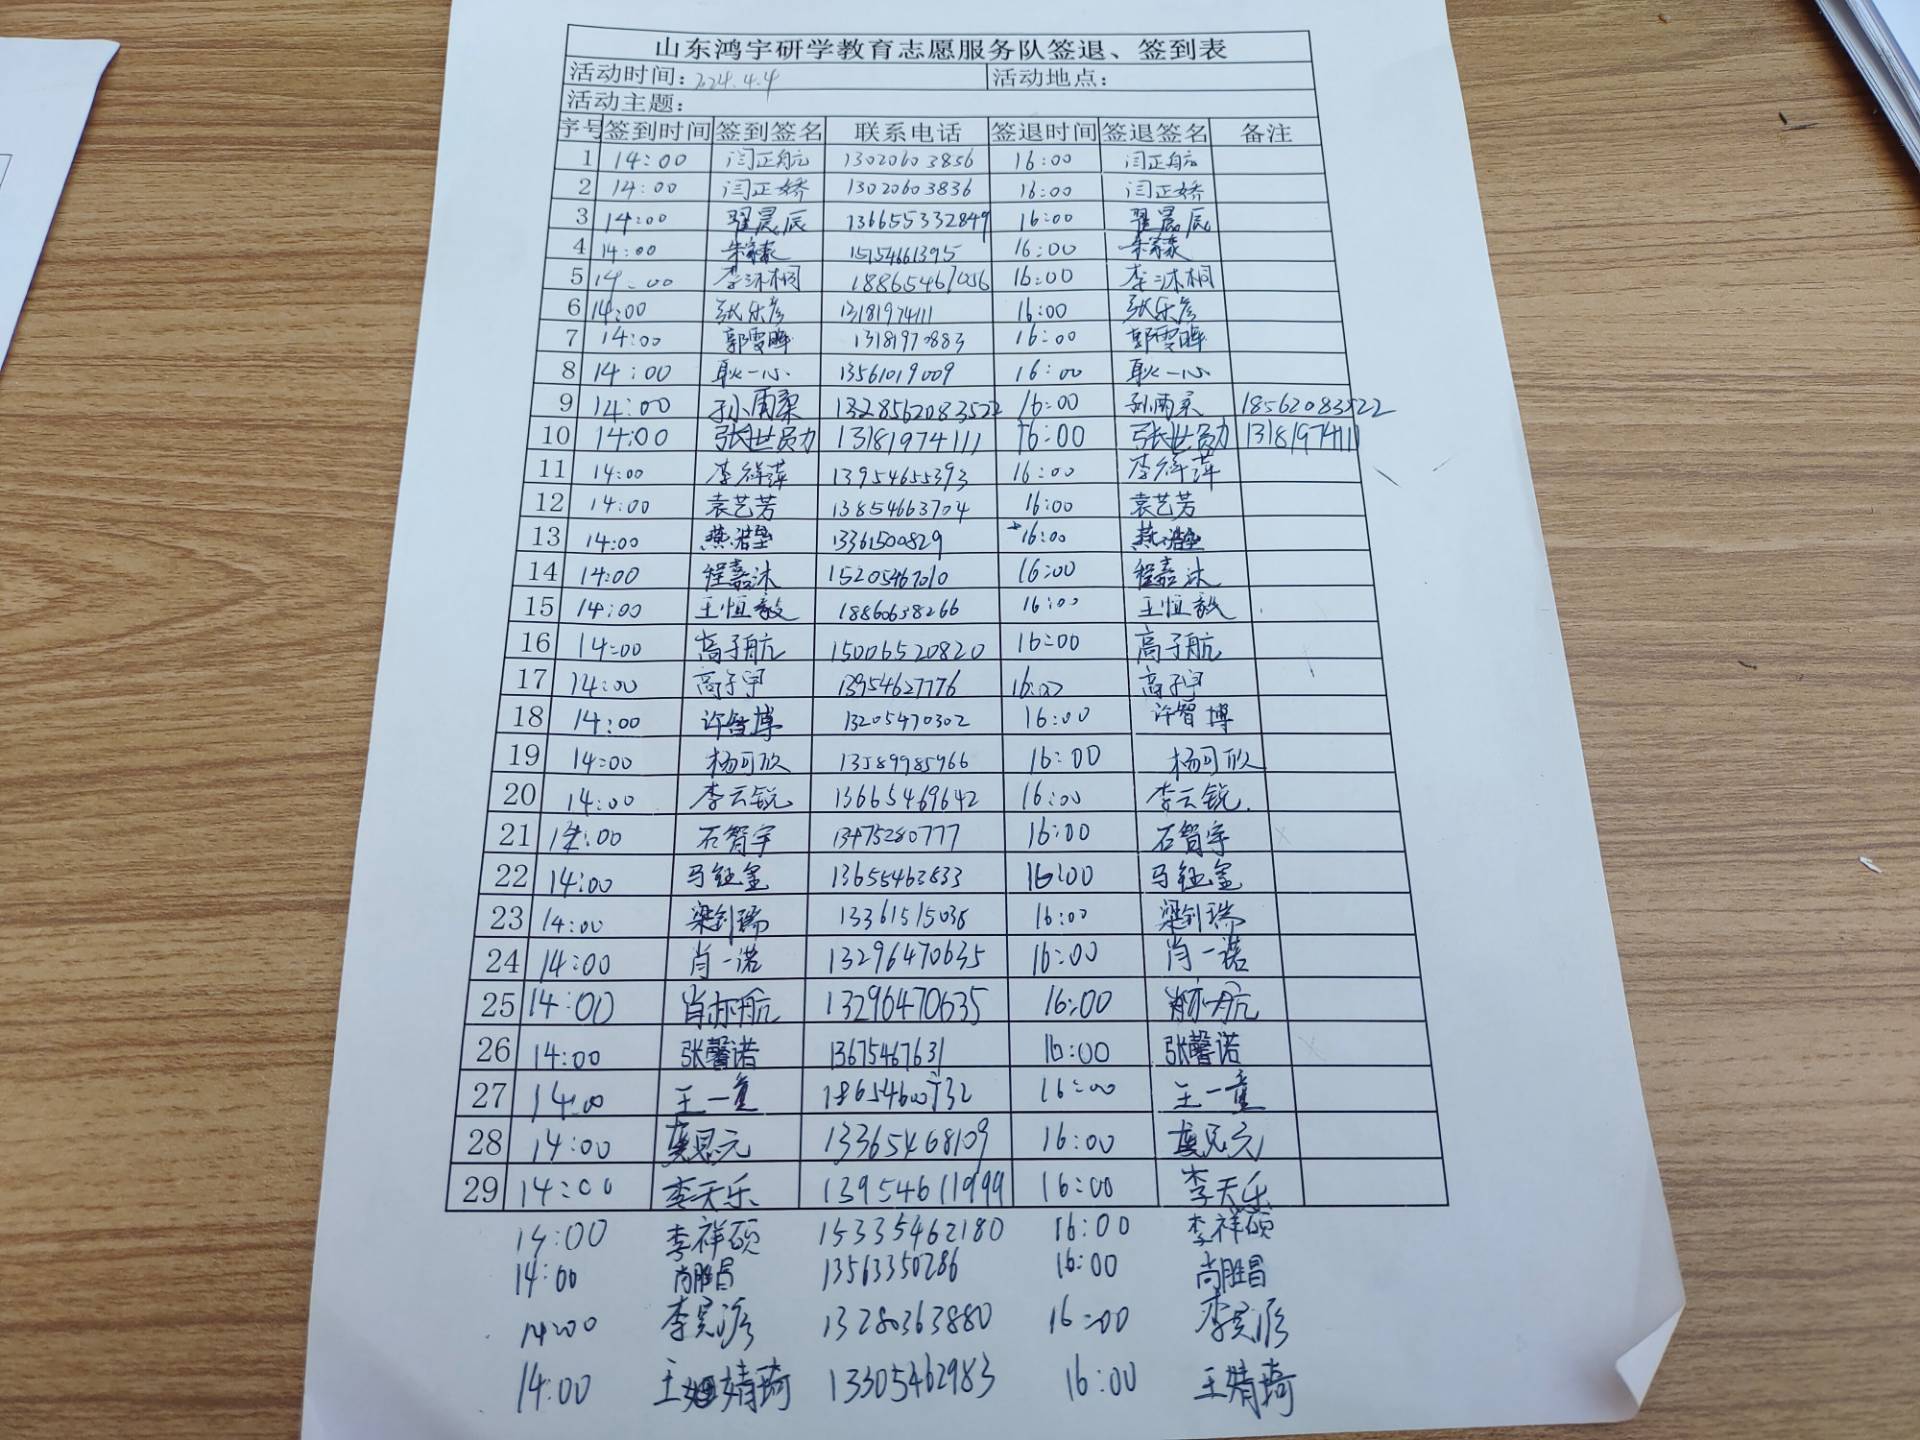 山东鸿宇研学教育志愿服务队签退、签到表
活动时间：2024.4.4 活动地点：
活动主题：
序号 签到时间 签到签名 联系电话 签退时间 签退签名 备注
1 14:00 闫正航 13020603856 16:00 闫正航
2 14:00 闫正娇 13020603836 16:00 闫正娇
3 14:00 翟晨辰 136655332849 16:00 翟晨辰
4 14:00 15154661395 16:00
5 14:00 李沐桐 18865467056 16:00 李沐桐
6 14:00 张乐彦 13181974111 16:00 张乐彦
7 14:00 郭雯晖 13181970883 16:00 郭雯晖
8 14:00 耿一心 13561019009 16:00 耿一心
9 14:00 孙雨柔 1328562083522 16:00 孙雨柔 18562083522
10 14:00 张世勋 13181974111 16:00 张世勋 13181974111
11 14:00 李祥萍 13954655393 16:00 李祥萍
12 14:00 袁艺芳 13854663704 16:00 袁艺芳
13 14:00 13361500829 16:00
14 14:00 程嘉沐 15205467010 16:00 程嘉沐
15 14:00 王恒毅 18860638266 16:00 王恒毅
16 14:00 高子航 15006520820 16:00 高子航
17 14:00 高子甲 13954627776 16:00 高子甲
18 14:00 许智博 13205470302 16:00 许智博
19 14:00 杨可欣 13589985966 16:00 杨可欣
20 14:00 李云锐 13665469642 16:00 李云锐
21 14:00 石智宇 13475280777 16:00 石智宇
22 14:00 马钰鑫 13655463833 16:00 马钰鑫
23 14:00 梁钊瑞 13361515038 16:00 梁钊瑞
24 14:00 肖一诺 13296470635 16:00 肖一诺
25 14:00 肖亦航 13296470635 16:00 肖亦航
26 14:00 张馨诺 13675467631 16:00 张馨诺
27 14:00 王一童 16:00 王一童
28 14:00 13365468109 16:00
29 14:00 李天乐 13954611999 16:00 李天乐
14:00 李祥硕 15335462180 16:00 李祥硕
14:00 尚胜昌 13563350286 16:00 尚胜昌
14:00 13280363880 16:00
14:00 王婧琦 13305462983 16:00 王婧琦